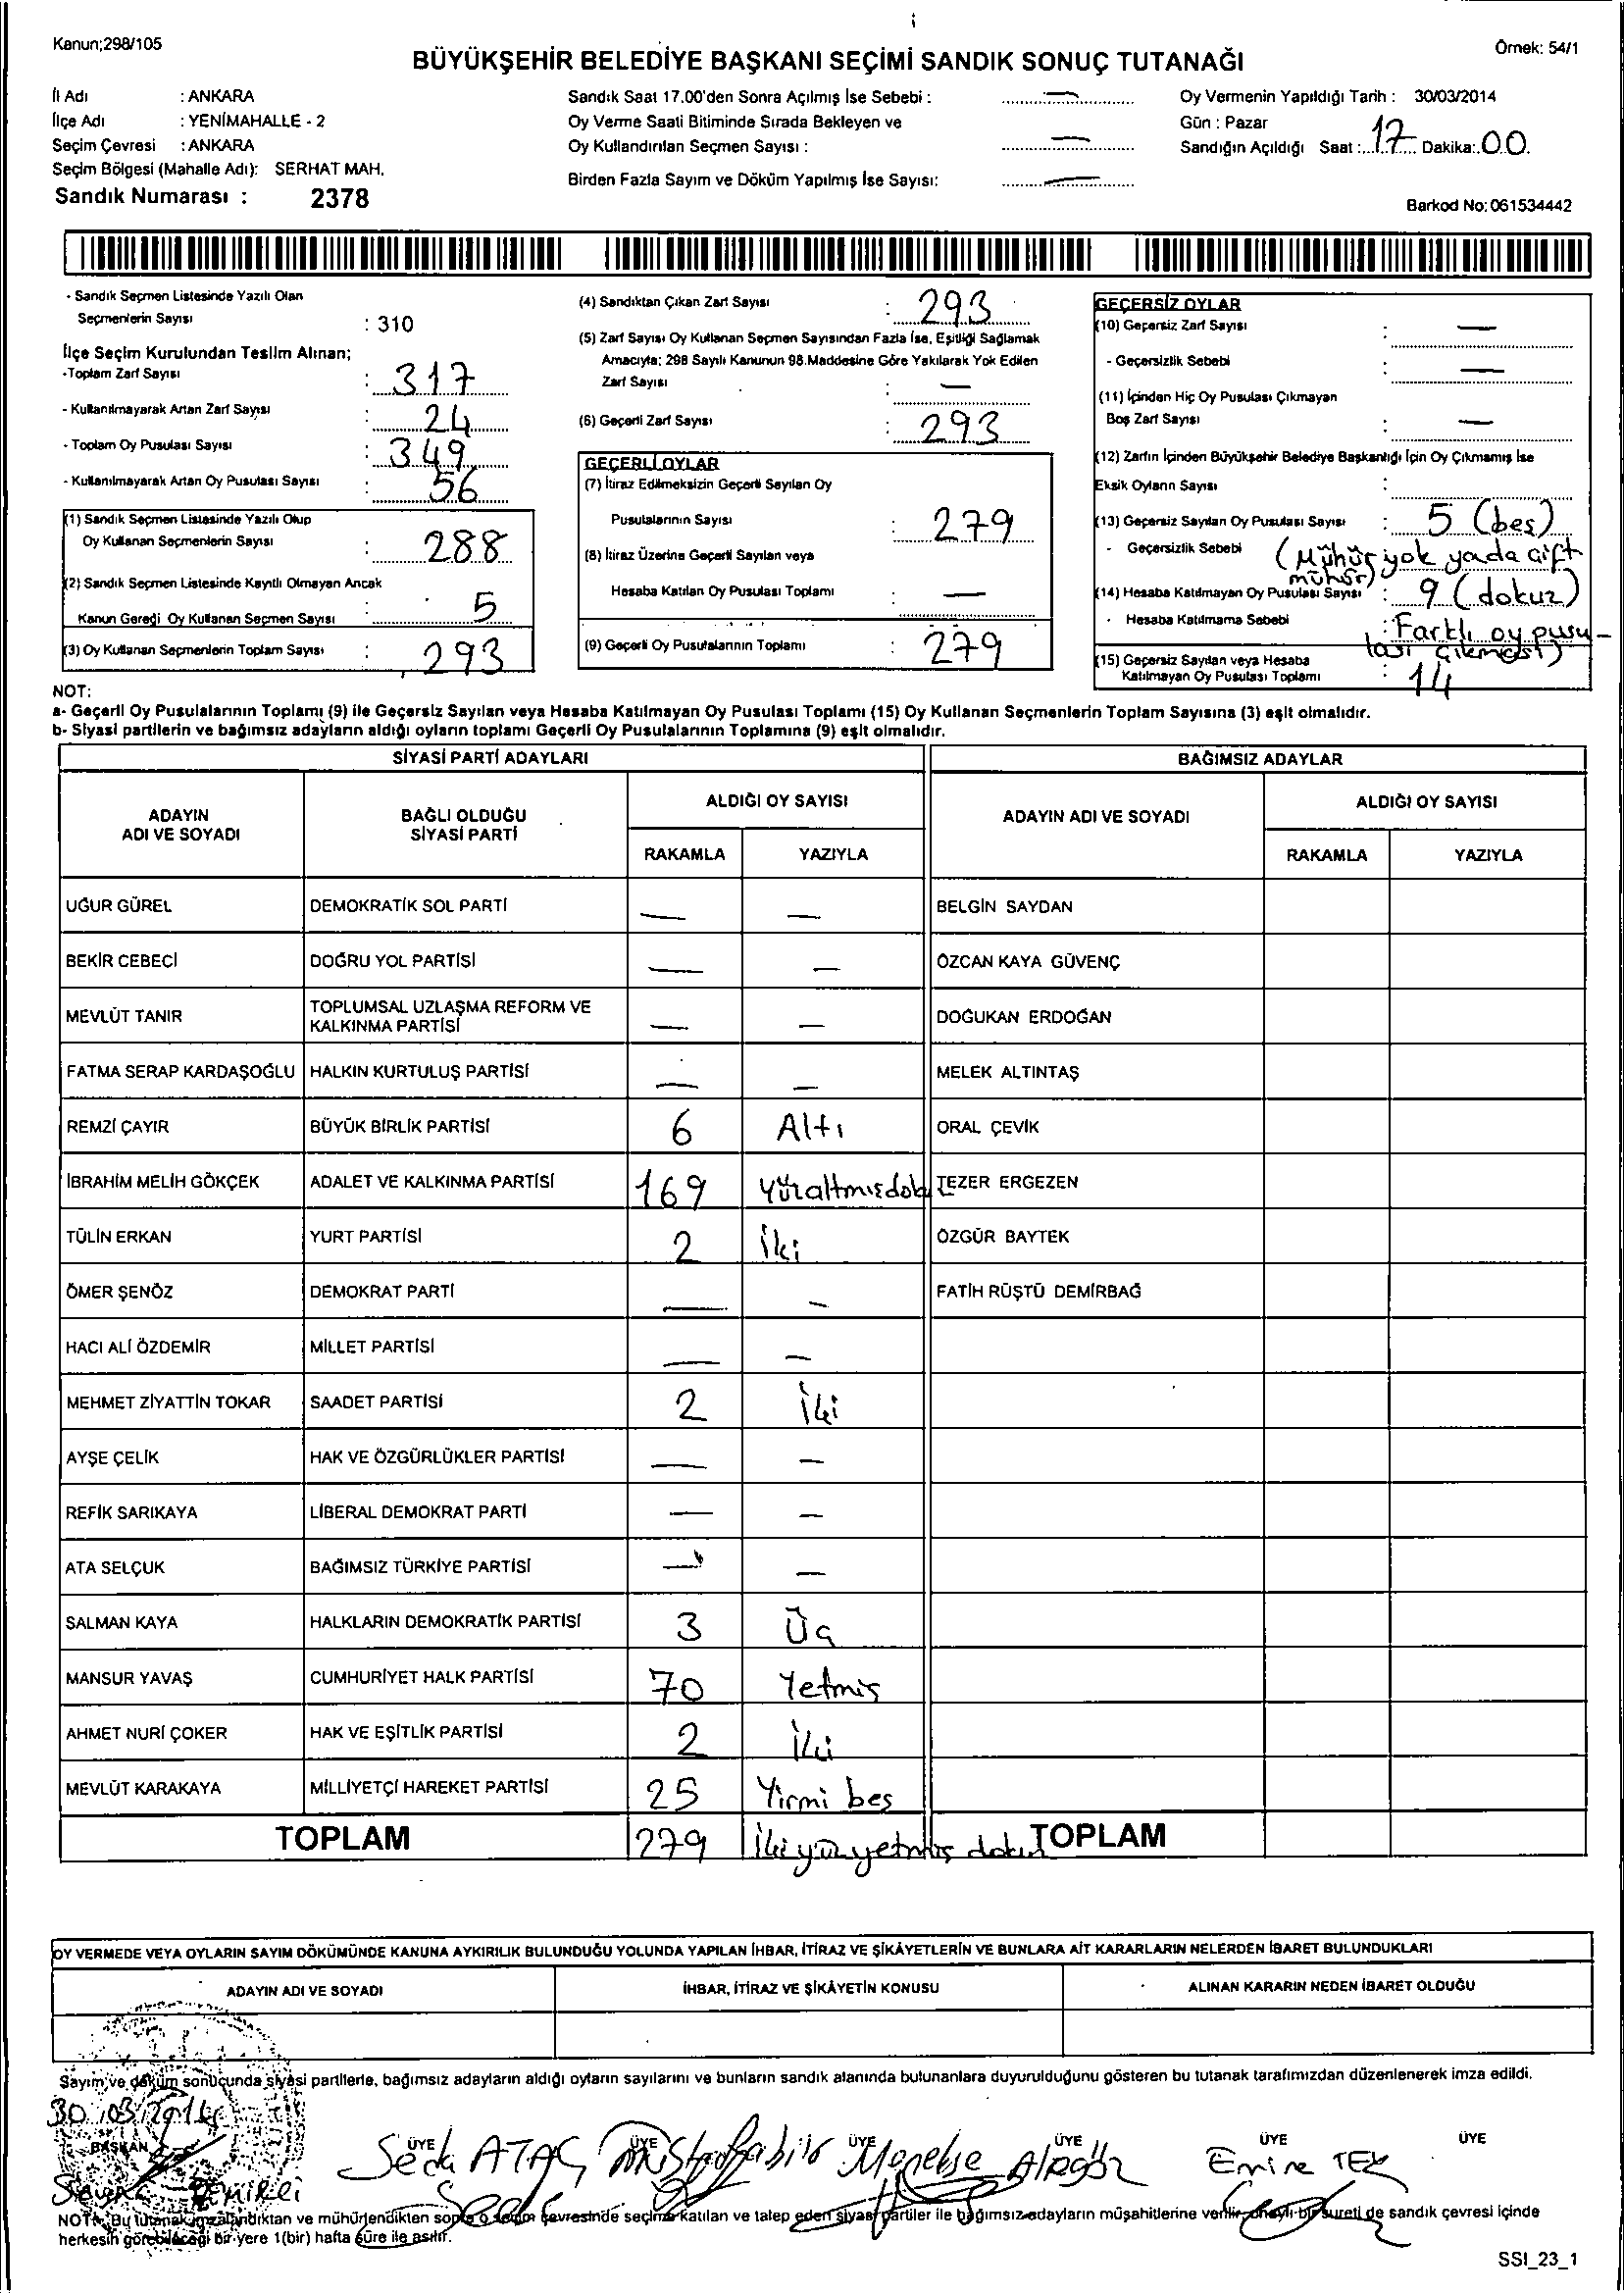 Kanun;298/105
Örnek: 54/1
BÜYÜKŞEHİR BELEDİYE BAŞKANI SEÇİMİ SANDIK SONUÇ TUTANAĞI
İl Adı : ANKARA
İlçe Adı : YENİMAHALLE - 2
Seçim Çevresi : ANKARA
Seçim Bölgesi (Mahalle Adı): SERHAT MAH.
Sandık Numarası : 2378
Sandık Saat 17.00'den Sonra Açılmış İse Sebebi : —
Oy Verme Saati Bitiminde Sırada Bekleyen ve
Oy Kullandırılan Seçmen Sayısı : —
Birden Fazla Sayım ve Döküm Yapılmış İse Sayısı: —
Oy Vermenin Yapıldığı Tarih : 30/03/2014
Gün : Pazar
Sandığın Açıldığı Saat : 17 Dakika: 00
Barkod No: 061534442
- Sandık Seçmen Listesinde Yazılı Olan
Seçmenlerin Sayısı : 310
İlçe Seçim Kurulundan Teslim Alınan;
-Toplam Zarf Sayısı : 317
- Kullanılmayarak Artan Zarf Sayısı : 24
- Toplam Oy Pusulası Sayısı : 349
- Kullanılmayarak Artan Oy Pusulası Sayısı : 56
(1) Sandık Seçmen Listesinde Yazılı Olup
Oy Kullanan Seçmenlerin Sayısı : 288
(2) Sandık Seçmen Listesinde Kayıtlı Olmayan Ancak
Kanun Gereği Oy Kullanan Seçmen Sayısı : 5
(3) Oy Kullanan Seçmenlerin Toplam Sayısı : 293
(4) Sandıktan Çıkan Zarf Sayısı : 293
(5) Zarf Sayısı Oy Kullanan Seçmen Sayısından Fazla İse, Eşitliği Sağlamak
Amacıyla; 298 Sayılı Kanunun 98.Maddesine Göre Yakılarak Yok Edilen
Zarf Sayısı : —
(6) Geçerli Zarf Sayısı : 293
GEÇERLİ OYLAR
(7) İtiraz Edilmeksizin Geçerli Sayılan Oy
Pusulalarının Sayısı : 279
(8) İtiraz Üzerine Geçerli Sayılan veya
Hesaba Katılan Oy Pusulası Toplamı : —
(9) Geçerli Oy Pusulalarının Toplamı : 279
GEÇERSİZ OYLAR
(10) Geçersiz Zarf Sayısı : —
- Geçersizlik Sebebi : —
(11) İçinden Hiç Oy Pusulası Çıkmayan
Boş Zarf Sayısı : —
(12) Zarfın İçinden Büyükşehir Belediye Başkanlığı İçin Oy Çıkmamış İse
Eksik Oyların Sayısı :
(13) Geçersiz Sayılan Oy Pusulası Sayısı : 5 (beş)
- Geçersizlik Sebebi (Mühür yok yada çift
mühür)
(14) Hesaba Katılmayan Oy Pusulası Sayısı : 9 (dokuz)
- Hesaba Katılmama Sebebi : Farklı oy pusu-
lası çıkması)
(15) Geçersiz Sayılan veya Hesaba
Katılmayan Oy Pusulası Toplamı : 14
NOT:
a- Geçerli Oy Pusulalarının Toplamı (9) ile Geçersiz Sayılan veya Hesaba Katılmayan Oy Pusulası Toplamı (15) Oy Kullanan Seçmenlerin Toplam Sayısına (3) eşit olmalıdır.
b- Siyasi partilerin ve bağımsız adayların aldığı oyların toplamı Geçerli Oy Pusulalarının Toplamına (9) eşit olmalıdır.
SİYASİ PARTİ ADAYLARI BAĞIMSIZ ADAYLAR
ADAYIN ADI VE SOYADI BAĞLI OLDUĞU SİYASİ PARTİ ALDIĞI OY SAYISI ADAYIN ADI VE SOYADI ALDIĞI OY SAYISI
RAKAMLA YAZIYLA RAKAMLA YAZIYLA
UĞUR GÜREL DEMOKRATİK SOL PARTİ — — BELGİN SAYDAN
BEKİR CEBECİ DOĞRU YOL PARTİSİ — — ÖZCAN KAYA GÜVENÇ
MEVLÜT TANIR TOPLUMSAL UZLAŞMA REFORM VE KALKINMA PARTİSİ — — DOĞUKAN ERDOĞAN
FATMA SERAP KARDAŞOĞLU HALKIN KURTULUŞ PARTİSİ — — MELEK ALTINTAŞ
REMZİ ÇAYIR BÜYÜK BİRLİK PARTİSİ 6 Altı ORAL ÇEVİK
İBRAHİM MELİH GÖKÇEK ADALET VE KALKINMA PARTİSİ 169 Yüzaltmışdokuz TEZER ERGEZEN
TÜLİN ERKAN YURT PARTİSİ 2 İki ÖZGÜR BAYTEK
ÖMER ŞENÖZ DEMOKRAT PARTİ — — FATİH RÜŞTÜ DEMİRBAĞ
HACI ALİ ÖZDEMİR MİLLET PARTİSİ — —
MEHMET ZİYATTİN TOKAR SAADET PARTİSİ 2 İki
AYŞE ÇELİK HAK VE ÖZGÜRLÜKLER PARTİSİ — —
REFİK SARIKAYA LİBERAL DEMOKRAT PARTİ — —
ATA SELÇUK BAĞIMSIZ TÜRKİYE PARTİSİ — —
SALMAN KAYA HALKLARIN DEMOKRATİK PARTİSİ 3 Üç
MANSUR YAVAŞ CUMHURİYET HALK PARTİSİ 70 Yetmiş
AHMET NURİ ÇOKER HAK VE EŞİTLİK PARTİSİ 2 İki
MEVLÜT KARAKAYA MİLLİYETÇİ HAREKET PARTİSİ 25 Yirmi beş
TOPLAM 279 İkiyüzyetmiş dokuz TOPLAM
OY VERMEDE VEYA OYLARIN SAYIM DÖKÜMÜNDE KANUNA AYKIRILIK BULUNDUĞU YOLUNDA YAPILAN İHBAR, İTİRAZ VE ŞİKÂYETLERİN VE BUNLARA AİT KARARLARIN NELERDEN İBARET BULUNDUKLARI
ADAYIN ADI VE SOYADI İHBAR, İTİRAZ VE ŞİKÂYETİN KONUSU ALINAN KARARIN NEDEN İBARET OLDUĞU
Sayım ve döküm sonucunda siyasi partilerle, bağımsız adayların aldığı oyların sayılarını ve bunların sandık alanında bulunanlara duyurulduğunu gösteren bu tutanak tarafımızdan düzenlenerek imza edildi.
30/03/2014
BAŞKAN ÜYE ÜYE ÜYE ÜYE ÜYE ÜYE
Seda ATAÇ Menekşe Alagöz Emine TEK
NOT: Bu tutanak imzalandıktan ve mühürlendikten sonra o seçim çevresinde seçime katılan ve talep eden siyasi partiler ile bağımsız adayların müşahitlerine verilir, onaylı bir sureti de sandık çevresi içinde
herkesin görebileceği bir yere 1(bir) hafta süre ile asılır.
SSI_23_1